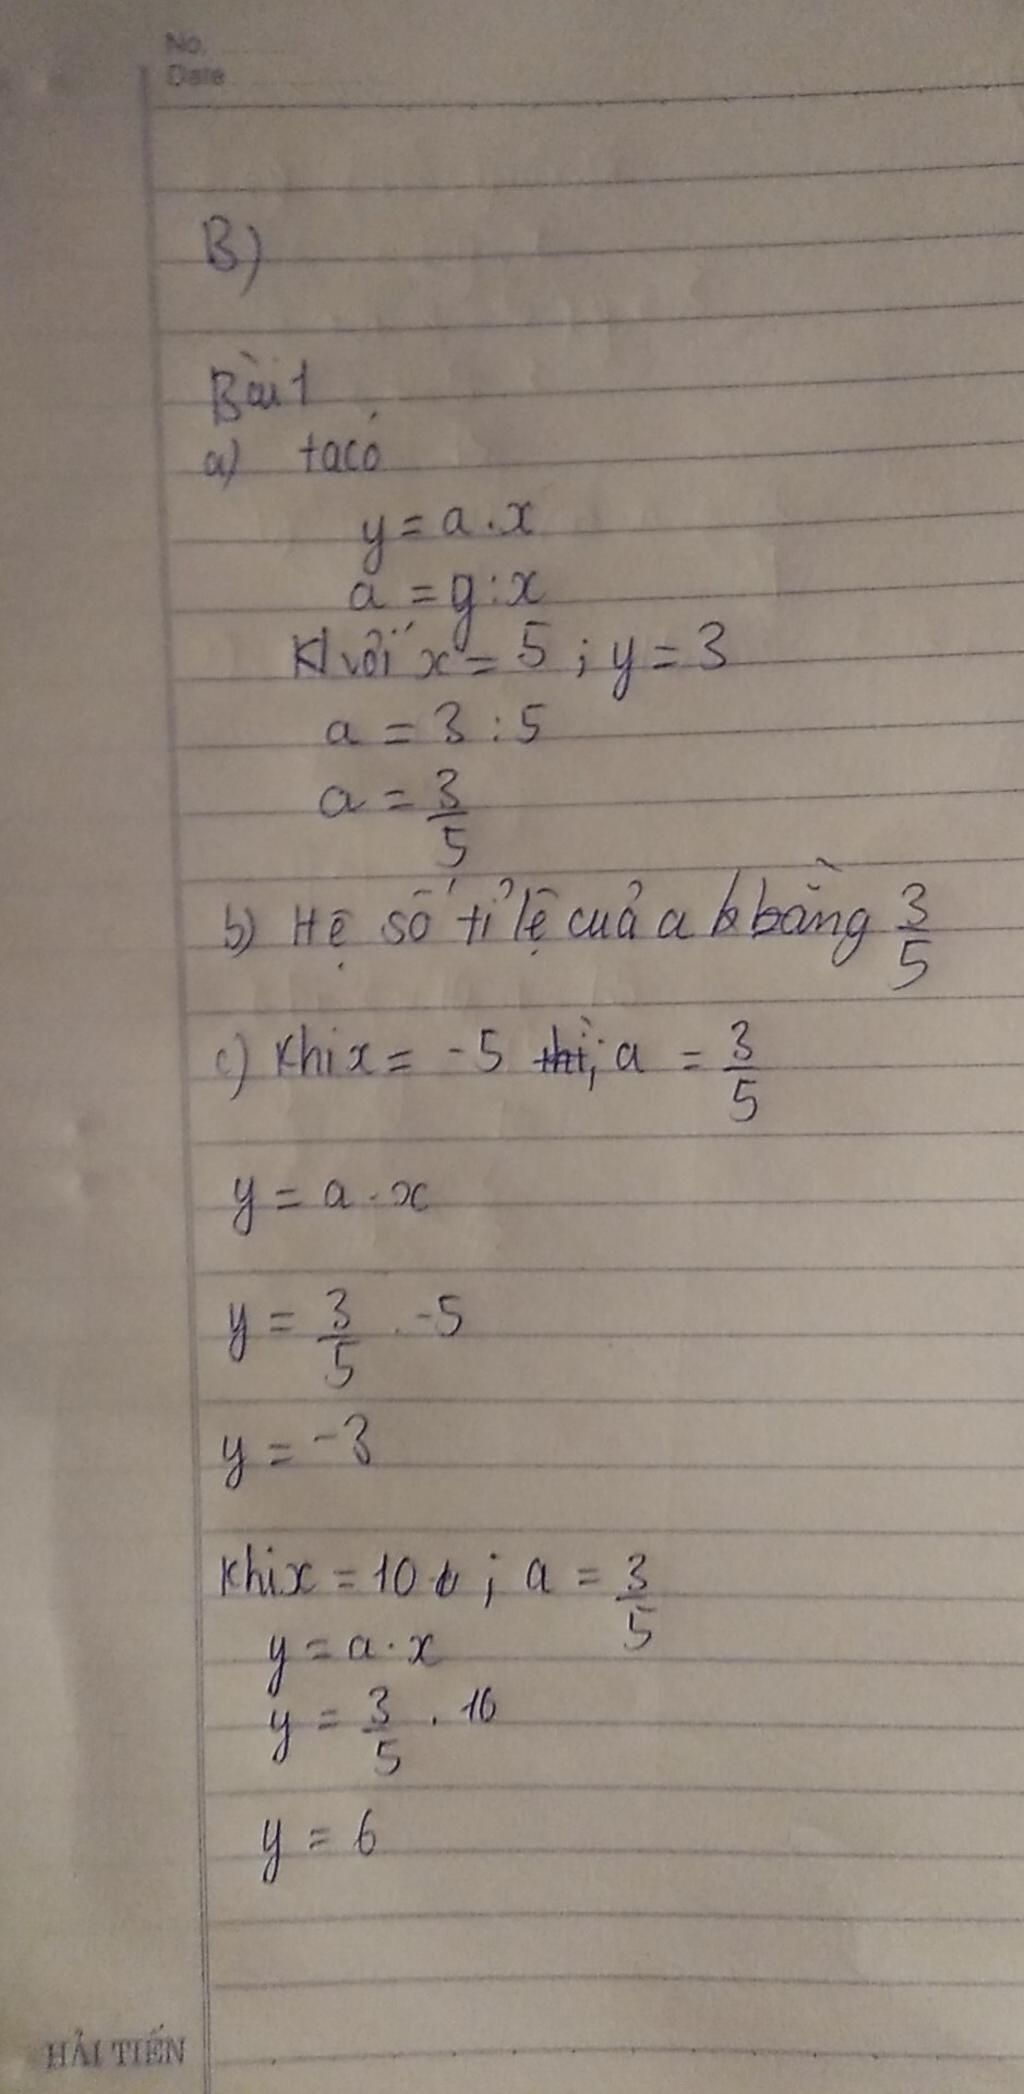 No.
Date
B)
Bài 1
a) ta có
y = a . x
a = y : x
với x = 5 ; y = 3
a = 3 : 5
a = 3/5
b) Hệ số tỉ lệ của a bằng 3/5
c) Khi x = -5 ; a = 3/5
y = a . x
y = 3/5 . -5
y = -3
Khi x = 10 ; a = 3/5
y = a . x
y = 3/5 . 10
y = 6
HẢI TIẾN